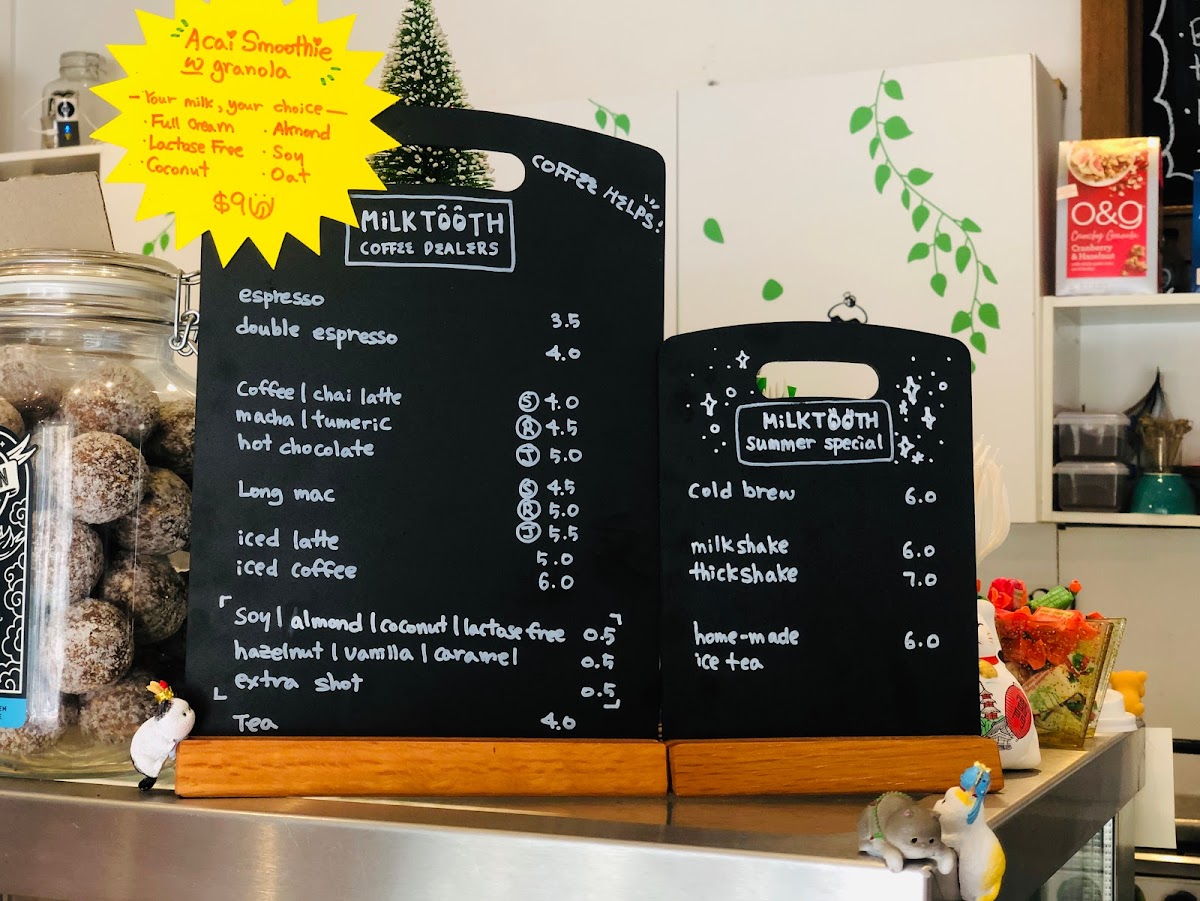 Acai Smoothie
w granola
- Your milk, your choice -
· Full Cream · Almond
· Lactose Free · Soy
· Coconut · Oat
$9
COFFEE HELPS!
MiLKTOOTH
COFFEE DEALERS
espresso 3.5
double espresso 4.0
Coffee | chai latte S 4.0
macha | tumeric R 4.5
hot chocolate J 5.0
Long mac S 4.5
R 5.0
J 5.5
iced latte 5.0
iced coffee 6.0
Soy | almond | coconut | lactase free 0.5
hazelnut | vanilla | caramel 0.5
extra shot 0.5
Tea 4.0
MiLKTOOTH
summer special
cold brew 6.0
milkshake 6.0
thickshake 7.0
home-made 6.0
ice tea
o&g
Crunchy Granola
Cranberry
& Hazelnut